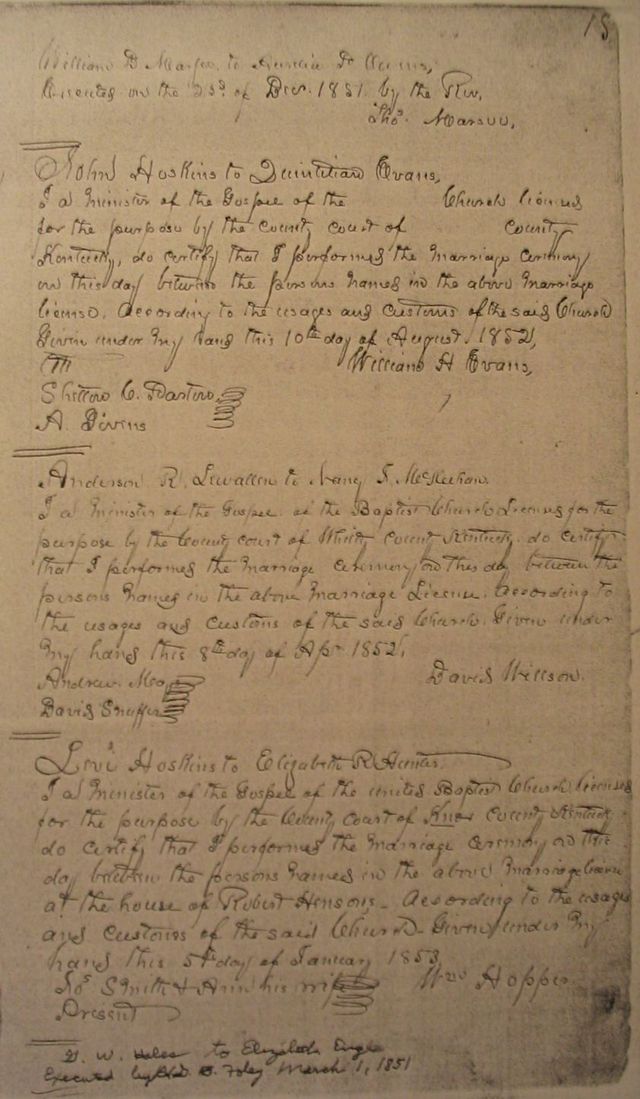 18
William D. to
Executed on the 23d of Decr. 1851 by the Rev,
Thos.
John Hoskins to Quintitiard Evans,
I a Minister of the Gospel of the Church licensed
for the purpose by the county court of county
Kentucky, do certify that I performed the Marriage ceremony
on this day between the persons Named in the above Marriage
license. According to the usages and customs of the said Church
Given under My hand this 10th day of August. 1852,
William H Evans,
C.
A. Givens
Anderson R. Lewallen to Nancy J. McKeehan.
I a Minister of the Gospel of the Baptist Church Licensed for the
purpose by the County court of Whitly County Kentucky. do certify
that I performed the Marriage ceremony on this day between the
persons Named in the above Marriage License. According to
the usages and customs of the said Church. Given under
My hand this 8th day of Apr 1852,
Andrew David Willson.
David
Levi Hoskins to Elizabeth R. Hunter.
I a Minister of the Gospel of the united Baptist Church licensed
for the purpose by the County Court of Knox County Kentucky
do certify that I performed the Marriage ceremony on this
day between the persons Named in the above Marriage license
at the house of Robert Hensons,- According to the usages
and customs of the said Church. Given under My
hand this 5th day of January 1853
Jos Smith & Ann his wife Wm Hopper
Present
G. W. to Elizabeth Engle
Executed by Foley March 1, 1851